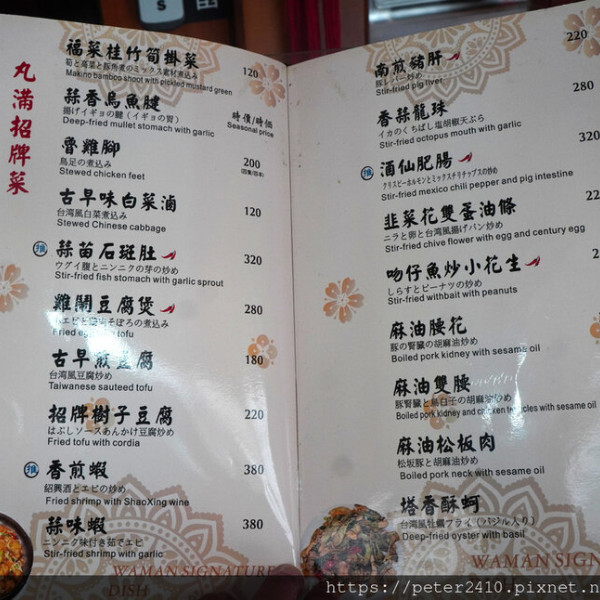 丸滿招牌菜
福菜桂竹筍掛菜
筍と高菜と豚角煮のミックス素材煮込み
Makino bamboo shoot with pickled mustard green
120
蒜香烏魚腱
揚げイギョの腱(イギョの胃)
Deep-fried mullet stomach with garlic
時價/時価
Seasonal price
魯雞腳
鳥足の煮込み
Stewed chicken feet
200
古早味白菜滷
台湾風白菜煮込み
Stewed Chinese cabbage
120
推
蒜苗石斑肚
ウグイ腹とニンニクの芽の炒め
Stir-fried fish stomach with garlic sprout
320
雞鬧豆腐煲
280
古早煎豆腐
台湾風豆腐炒め
Taiwanese sauteed tofu
180
招牌樹子豆腐
はぶしソースあんかけ豆腐炒め
Fried tofu with cordia
220
推
香煎蝦
紹興酒とエビの炒め
Fried shrimp with ShaoXing wine
380
蒜味蝦
ニンニク味付き茹でエビ
Stir-fried shrimp with garlic
380
WAMAN SIGNATURE
DISH
南煎豬肝
豚レバー炒め
Stir-fried pig liver
220
香蒜龍珠
イカのくちばし塩胡椒天ぷら
Stir-fried octopus mouth with garlic
280
推
酒仙肥腸
クリスピーホルモンとミックスチリチップスの炒め
Stir-fried mexico chili pepper and pig intestine
320
韭菜花雙蛋油條
ニラと卵と台湾風揚げパン炒め
Stir-fried chive flower with egg and century egg
吻仔魚炒小花生
しらすとピーナツの炒め
Stir-fried withbait with peanuts
麻油腰花
豚の腎臓の胡麻油炒め
Boiled pork kidney with sesame oil
麻油雙腰
豚腎臓と鳥白子の胡麻油炒め
Boiled pork kidney and chicken testicles with sesame oil
麻油松板肉
松坂豚と胡麻油炒め
Boiled pork neck with sesame oil
塔香酥蚵
台湾風牡蠣フライ(バジル入り)
Deep-fried oyster with basil
WAMAN SIGN
https://peter2410.pixnet.n